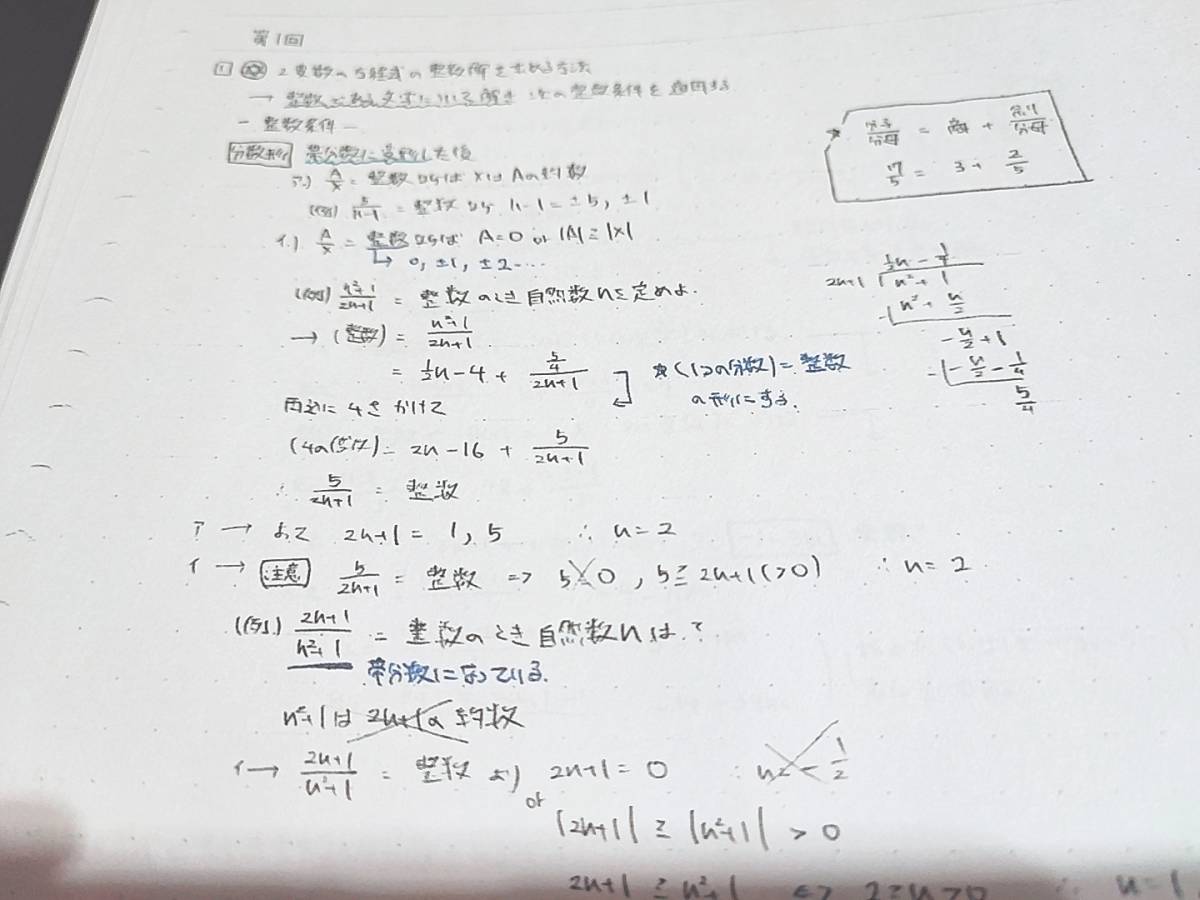 第1回
1 2変数の方程式の整数解を求める方法
→ 整数である文字について解き 次の整数条件を適用する
- 整数条件 -
分数形 帯分数に変形した後
ア.) A/x = 整数 ならば xはAの約数
(例) 5/(n-1) = 整数 なら n-1 = ±5, ±1
イ.) A/x = 整数 ならば A=0 or |A|≧|x|
↳ 0, ±1, ±2…
(例) (n²+1)/(2n+1) = 整数のとき自然数nを定めよ.
→ (整数) = (n²+1)/(2n+1)
= 1/2n-4 + (5/4)/(2n+1)
★(1つの分数)=整数
の形にする.
両辺に4をかけて
(4の倍数) = 2n-16 + 5/(2n+1)
∴ 5/(2n+1) = 整数
ア → よって 2n+1 = 1, 5 ∴ n=2
イ → 注意 5/(2n+1) = 整数 => 5=0, 5≧2n+1(>0) ∴ n=2
(例) (2n+1)/(n²+1) = 整数のとき自然数nは?
帯分数になっている.
n²+1は 2n+1の約数
イ → (2n+1)/(n²+1) = 整数 より 2n+1=0 ∴ n=-1/2
or |2n+1| ≧ |n²+1| > 0
2n+1 ≧ n²+1 <=> 2≧n>0 ∴ n=1
★ 分子/分母 = 商 + 余り/分母
17/5 = 3 + 2/5
1/2n - 1/4
2n+1 n²+1
-) n² + n/2
-n/2 + 1
-) -n/2 - 1/4
5/4